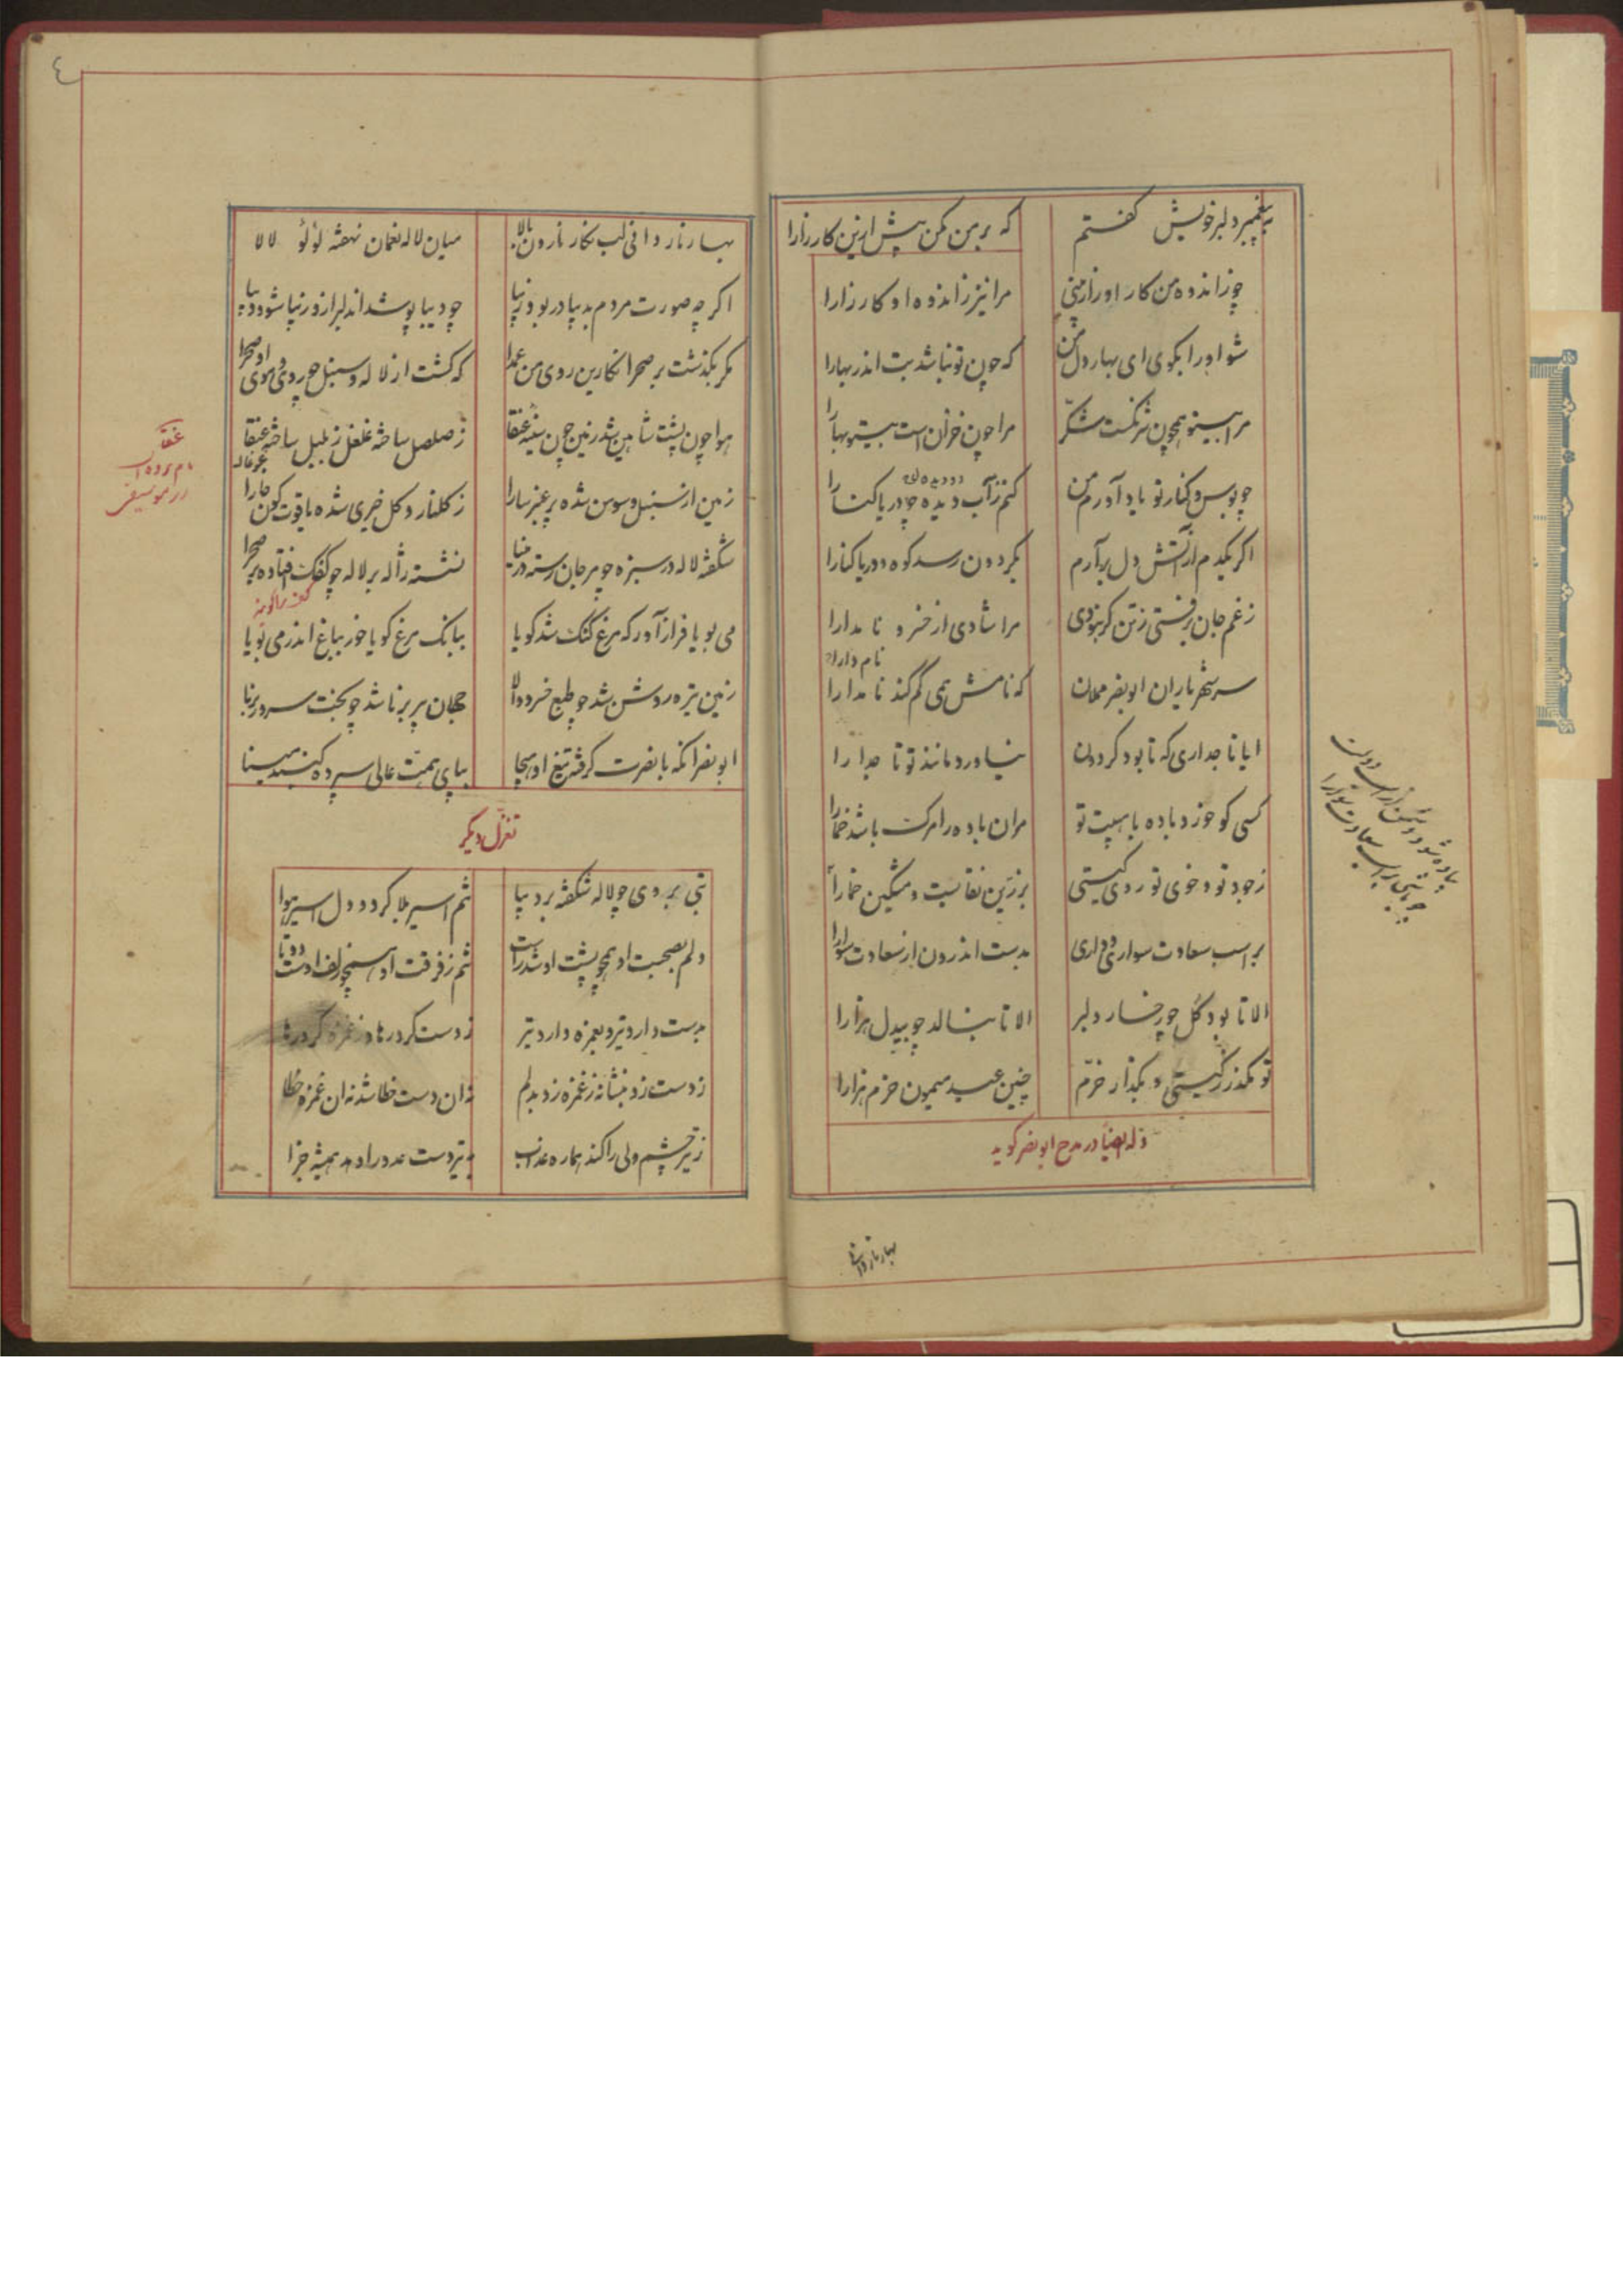 به پیغمبر دلبر خویش گفتم که بر من مکن بیش ازین کار زارا
چو ز اندوه من کار او زار بینی مرا نیز ز اندوه او کار زارا
شو او را بگوی ای بهار دل من که چون تو نباشد بت اندر بهارا
مرا بی تو همچون شرنگست شکّر مرا چون خزان است بیتو بهارا
چو بوس و کنار تو یاد آورم من کنم ز آب دیده چو دریا کنارا
اکر یکدم از آتش دل برآرم بکردون رسد کوه و دریا کنارا
ز غم جان برفتی ز تن کر نبودی مرا شادی از خسرو نامدارا
نام دارا
سر شهریاران ابونصر مملان که نامش همی کم کند نامدارا
ایا تاجداری که تا بود کردون نیاورد مانند تو تاجدارا
کسی کو خورد باده با هیبت تو مر آن باده را مرک باشد خمارا
ز جود تو و خوی تو روی کیتی برزین نقابست و مشکین خمارا
بر اسب سعادت سواری و داری بدست اندرون از سعادت سوارا
الا تا بود کل چو رخسار دلبر الا تا بنالد چو بیدل هزارا
تو مکذر ز کیتی و بکذار خرّم چنین عید میمون خرم هزارا
و له ایضاً در مدح ابونصر کوید
بهار تازه
٤
بهار نار و نارون بالا میان لاله نعمان نهفته لؤلؤ لالا
اکر چه صورت مردم بدیبا در بود زیبا چو دیبا پوشد آن دلبر ازو زیبا شود دیبا
مکر بکذشت بر صحرا نکارین روی من عمدا که کشت از لاله و سنبل چو روی و موی او صحرا
هوا چون پشت شاهین شد زمین چون سینه عنقا ز صلصل ساخته غلغل ز بلبل ساخته عنقا
عنقا
نام رود
در موسیقی
زمین از سنبل و سوسن شده پر عنبر سارا ز کلنار و کل خیری شده یاقوت کون خارا
شکفته لاله در سبزه چو مرجان رسته در مینا نشسته ژاله بر لاله چو کفک افتاده بر صحرا
می بویا فراز آور که مرغ کنک شد کویا ببانک مرغ کویا خور بباغ اندر می بویا
زمین تیره روشن شد چو طبع خسرو والا جهان پیر برنا شد چو بخت سرور برنا
ابونصر آنکه با نصرت کرفته تیغ او همجا بپای همت عالی سپرده کنبد مینا
تغزّل دیکر
بتی بروی چو لاله شکفته بر دیبا تنم اسیر بلا کرد و دل اسیر هوا
دلم بصحبت او همچو پشت او شد راست تنم ز فرقت او همچو زلف اوست دوتا
بدست دارد تیر و بغمزه دارد تیر ز دست کرد رها و ز غمزه کرد رها
ز دست زد بنشانه ز غمزه زد بدلم نه آن دست خطا شد نه آن غمزه خطا
ز تیر چشم ولی را کند هماره عذاب به تیر دست عدو را دهد همیشه جزا